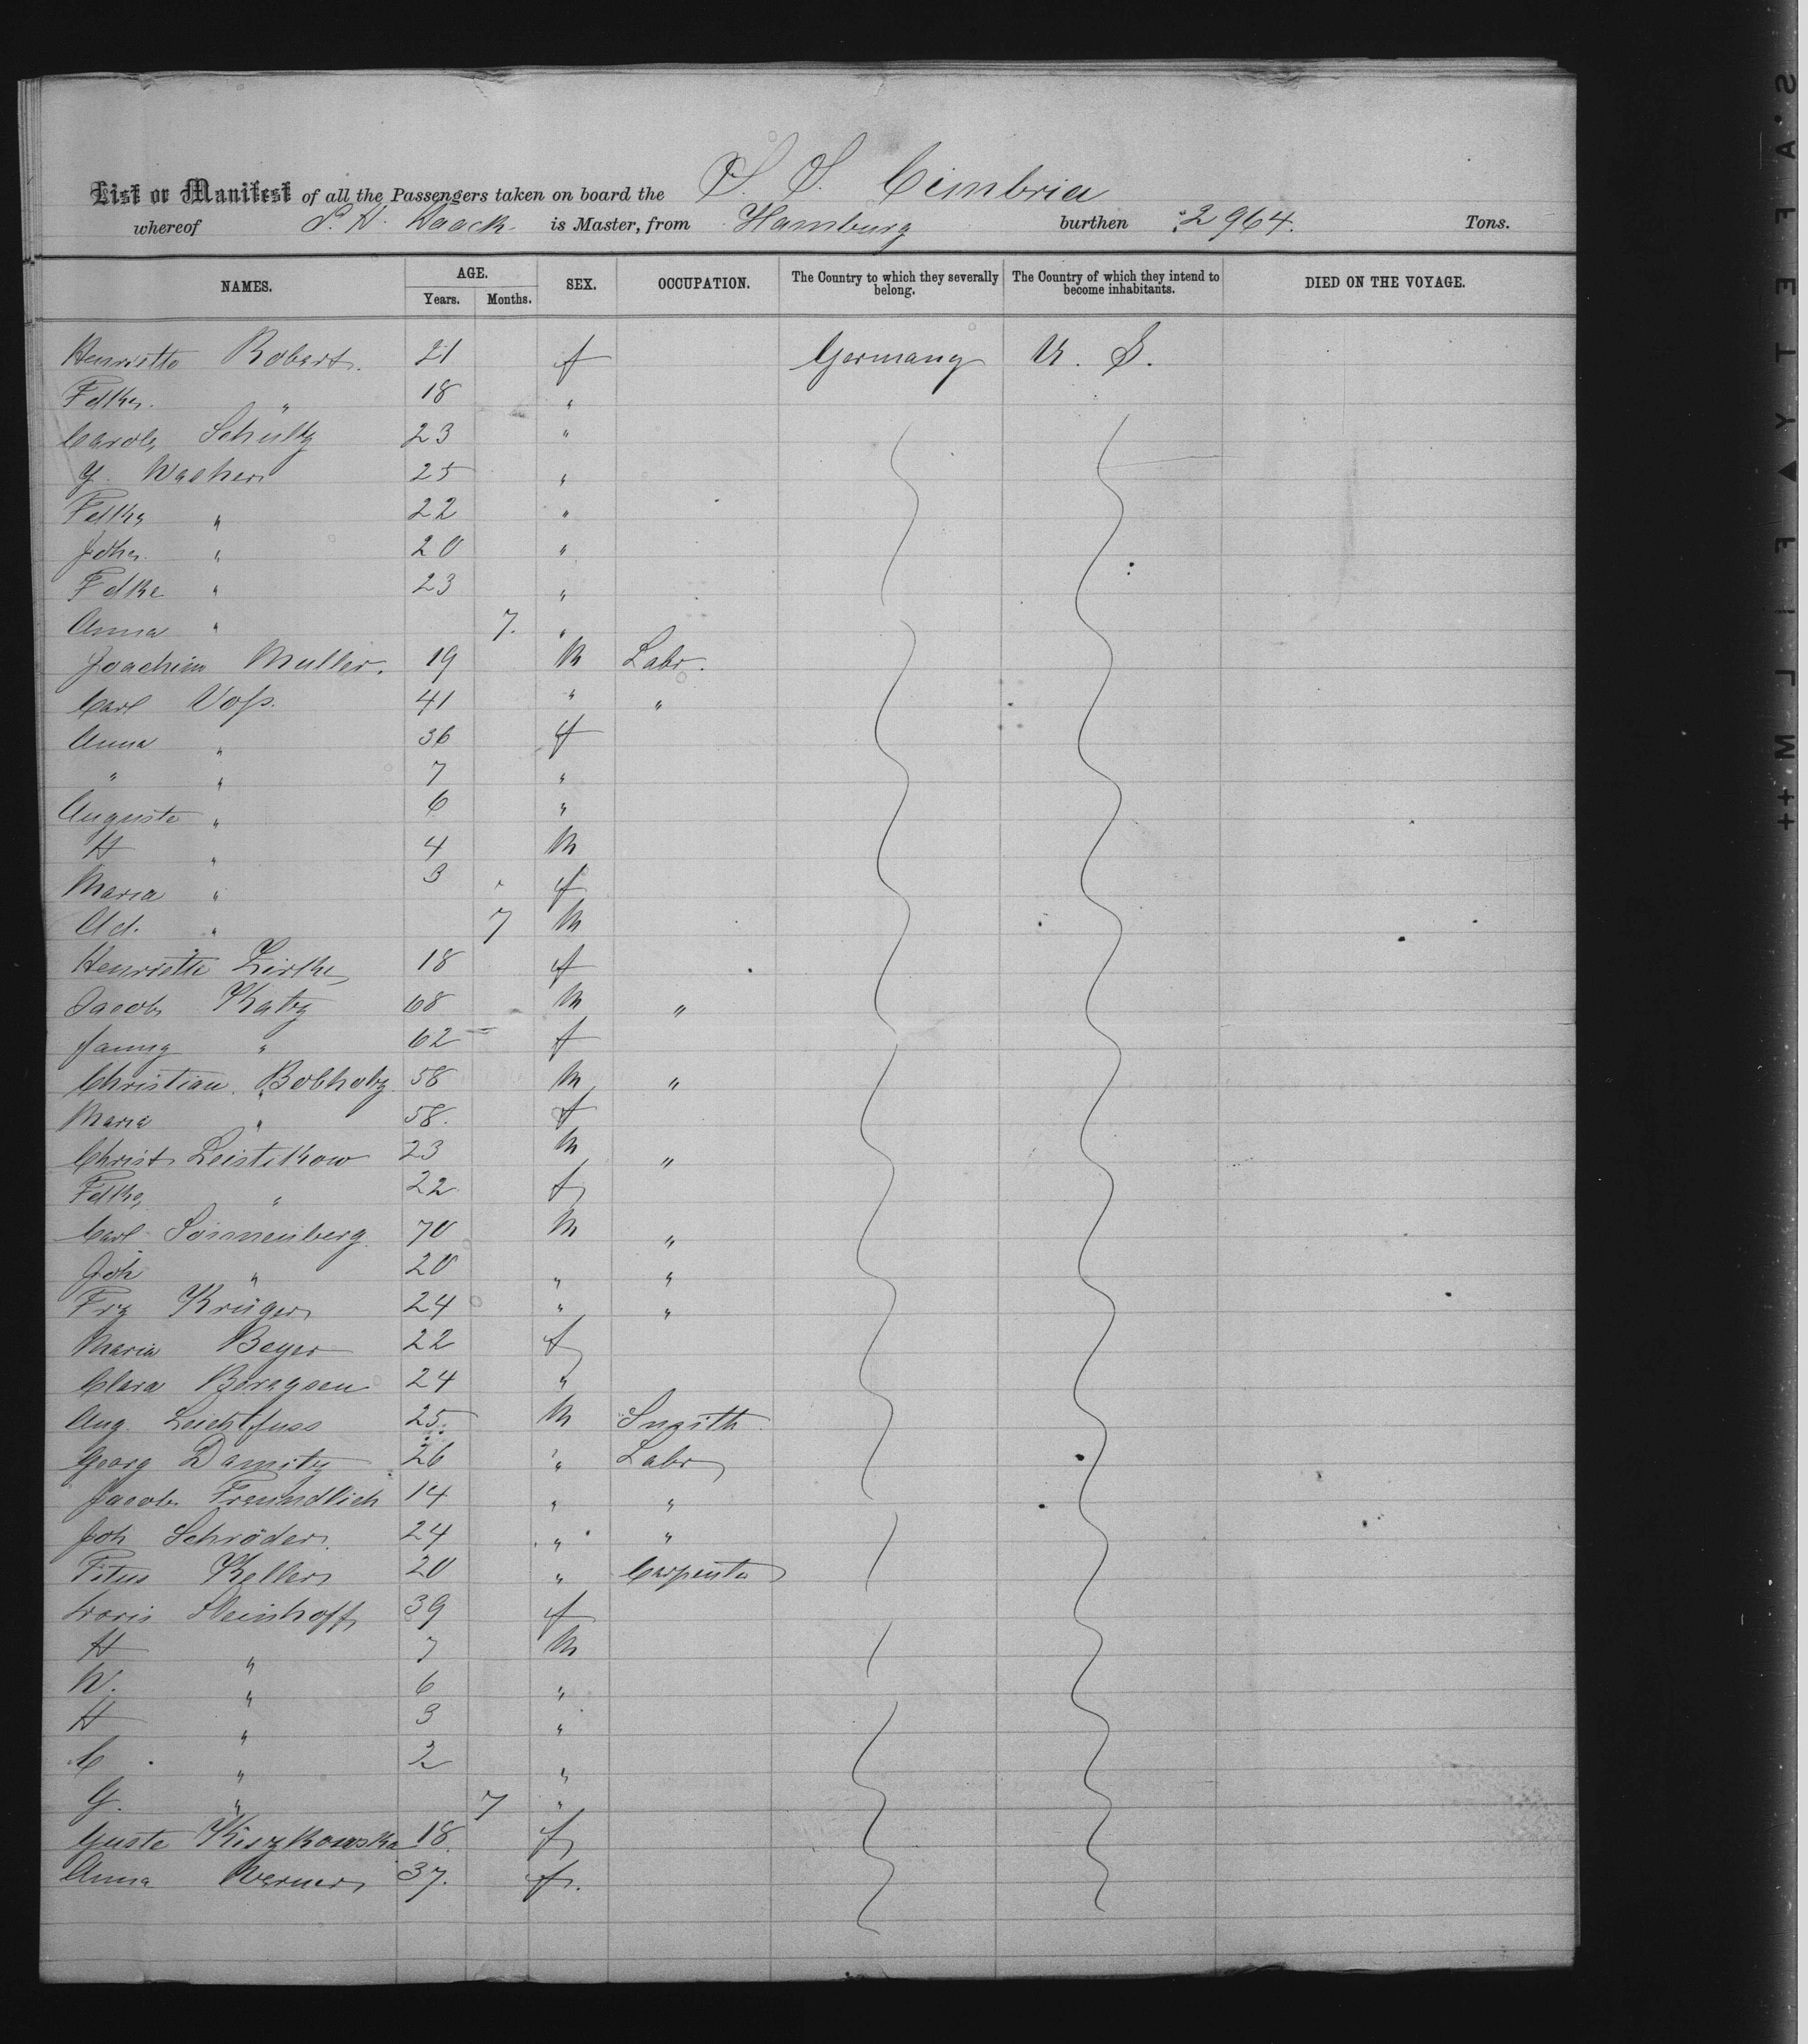 List or Manifest of all the Passengers taken on board the S. S. Cimbria
whereof P. H. Haack is Master, from Hamburg burthen 2964. Tons.
NAMES. AGE. Years. Months. SEX. OCCUPATION. The Country to which they severally belong. The Country of which they intend to become inhabitants. DIED ON THE VOYAGE.
Henriette Robert. 21 f Germany U. S.
Fdke. " 18 "
Carol. Schultz 23 "
25 "
Fdke " 22 "
Johe. " 20 "
Fdke " 23 "
Anna " 7. "
Joachim Muller. 19 M Labr.
Carl Voss. 41 " "
Anna " 36 f
" " 7 "
Auguste " 6 "
H " 4 M
Maria " 3 f
Ad. " 7 M
Henriette 18 f
Jacob Katz 68 M "
Fanny " 62 f
Christian Bobholz 58 M "
Maria " 58. f
Christ Leistikow 23 M "
Fdke " 22 f
Carl Sonnenberg 70 M "
Joh " 20 " "
Frz Krüger 24 " "
Maria Beyer 22 f
Clara 24 "
Aug. Leichtfuss 25. M Smith
Georg Damitz 26 " Labr
Jacob Freundlich 14 " "
Joh Schröder 24 " "
Titus Keller 20 " Carpenter
Doris Steinhoff 39 f
H " 7 M
W. " 6 "
H " 3 "
C " 2 "
G. " 7 "
Guste Kiszkowska 18 f
Anna Werner 37. f.
SAFETY ▲ FILM ++